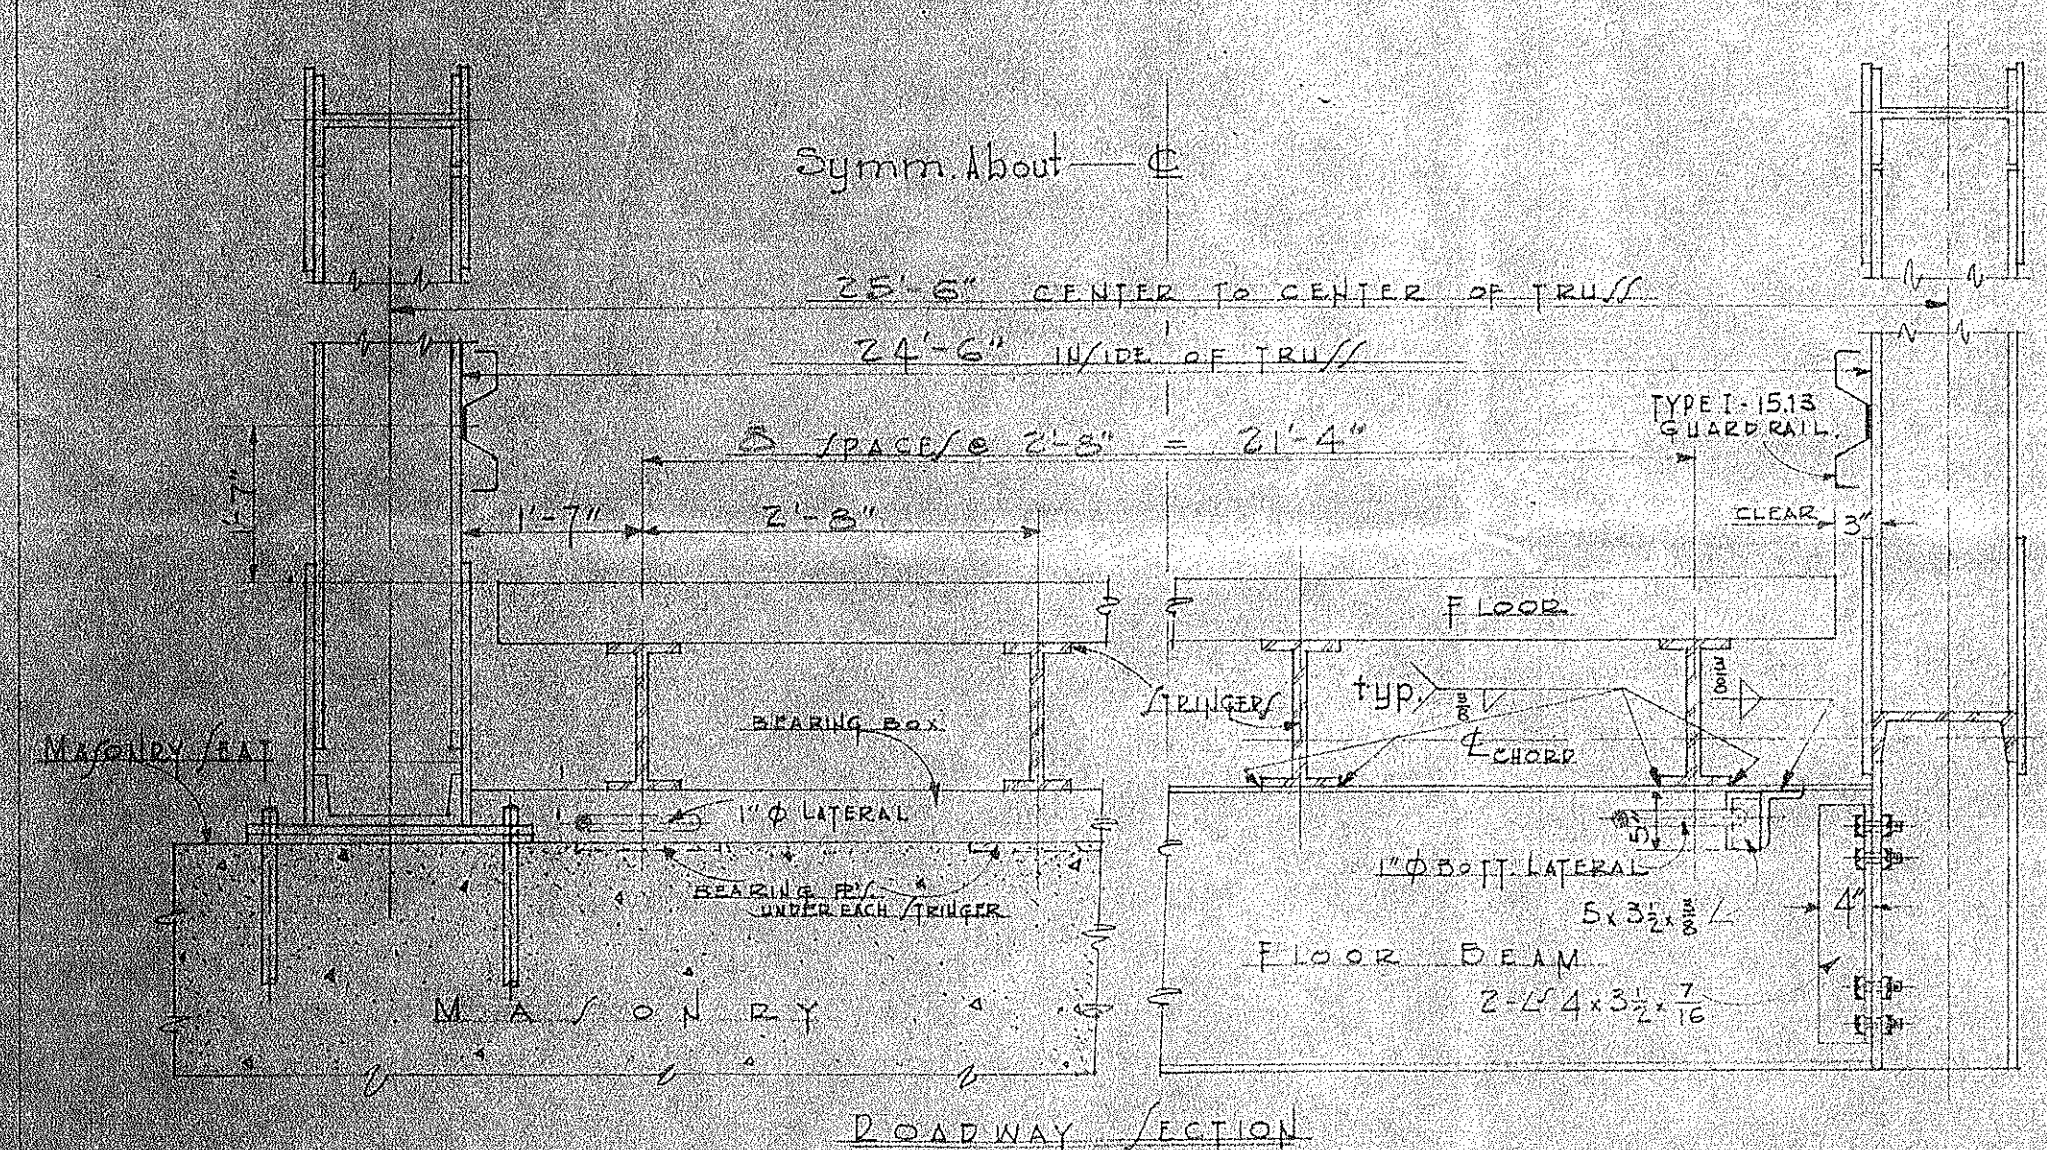 Symm. About ℄
25'-6" CENTER TO CENTER OF TRUSS
24'-6" INSIDE OF TRUSS
TYPE I-15.13
GUARD RAIL.
8 SPACES @ 2'-8" = 21'-4"
1'-7"
1'-7"
2'-8"
CLEAR 3"
FLOOR
STRINGERS
typ. 3/8
3/8
BEARING BOX
℄ CHORD
MASONRY SEAT
1" Φ LATERAL
5"
1" Φ BOTT. LATERAL
BEARING ℞'S
UNDER EACH STRINGER
5 x 3 1/2 x 3/8 L
4"
FLOOR BEAM
2-LS 4 x 3 1/2 x 7/16
MASONRY
ROADWAY SECTION